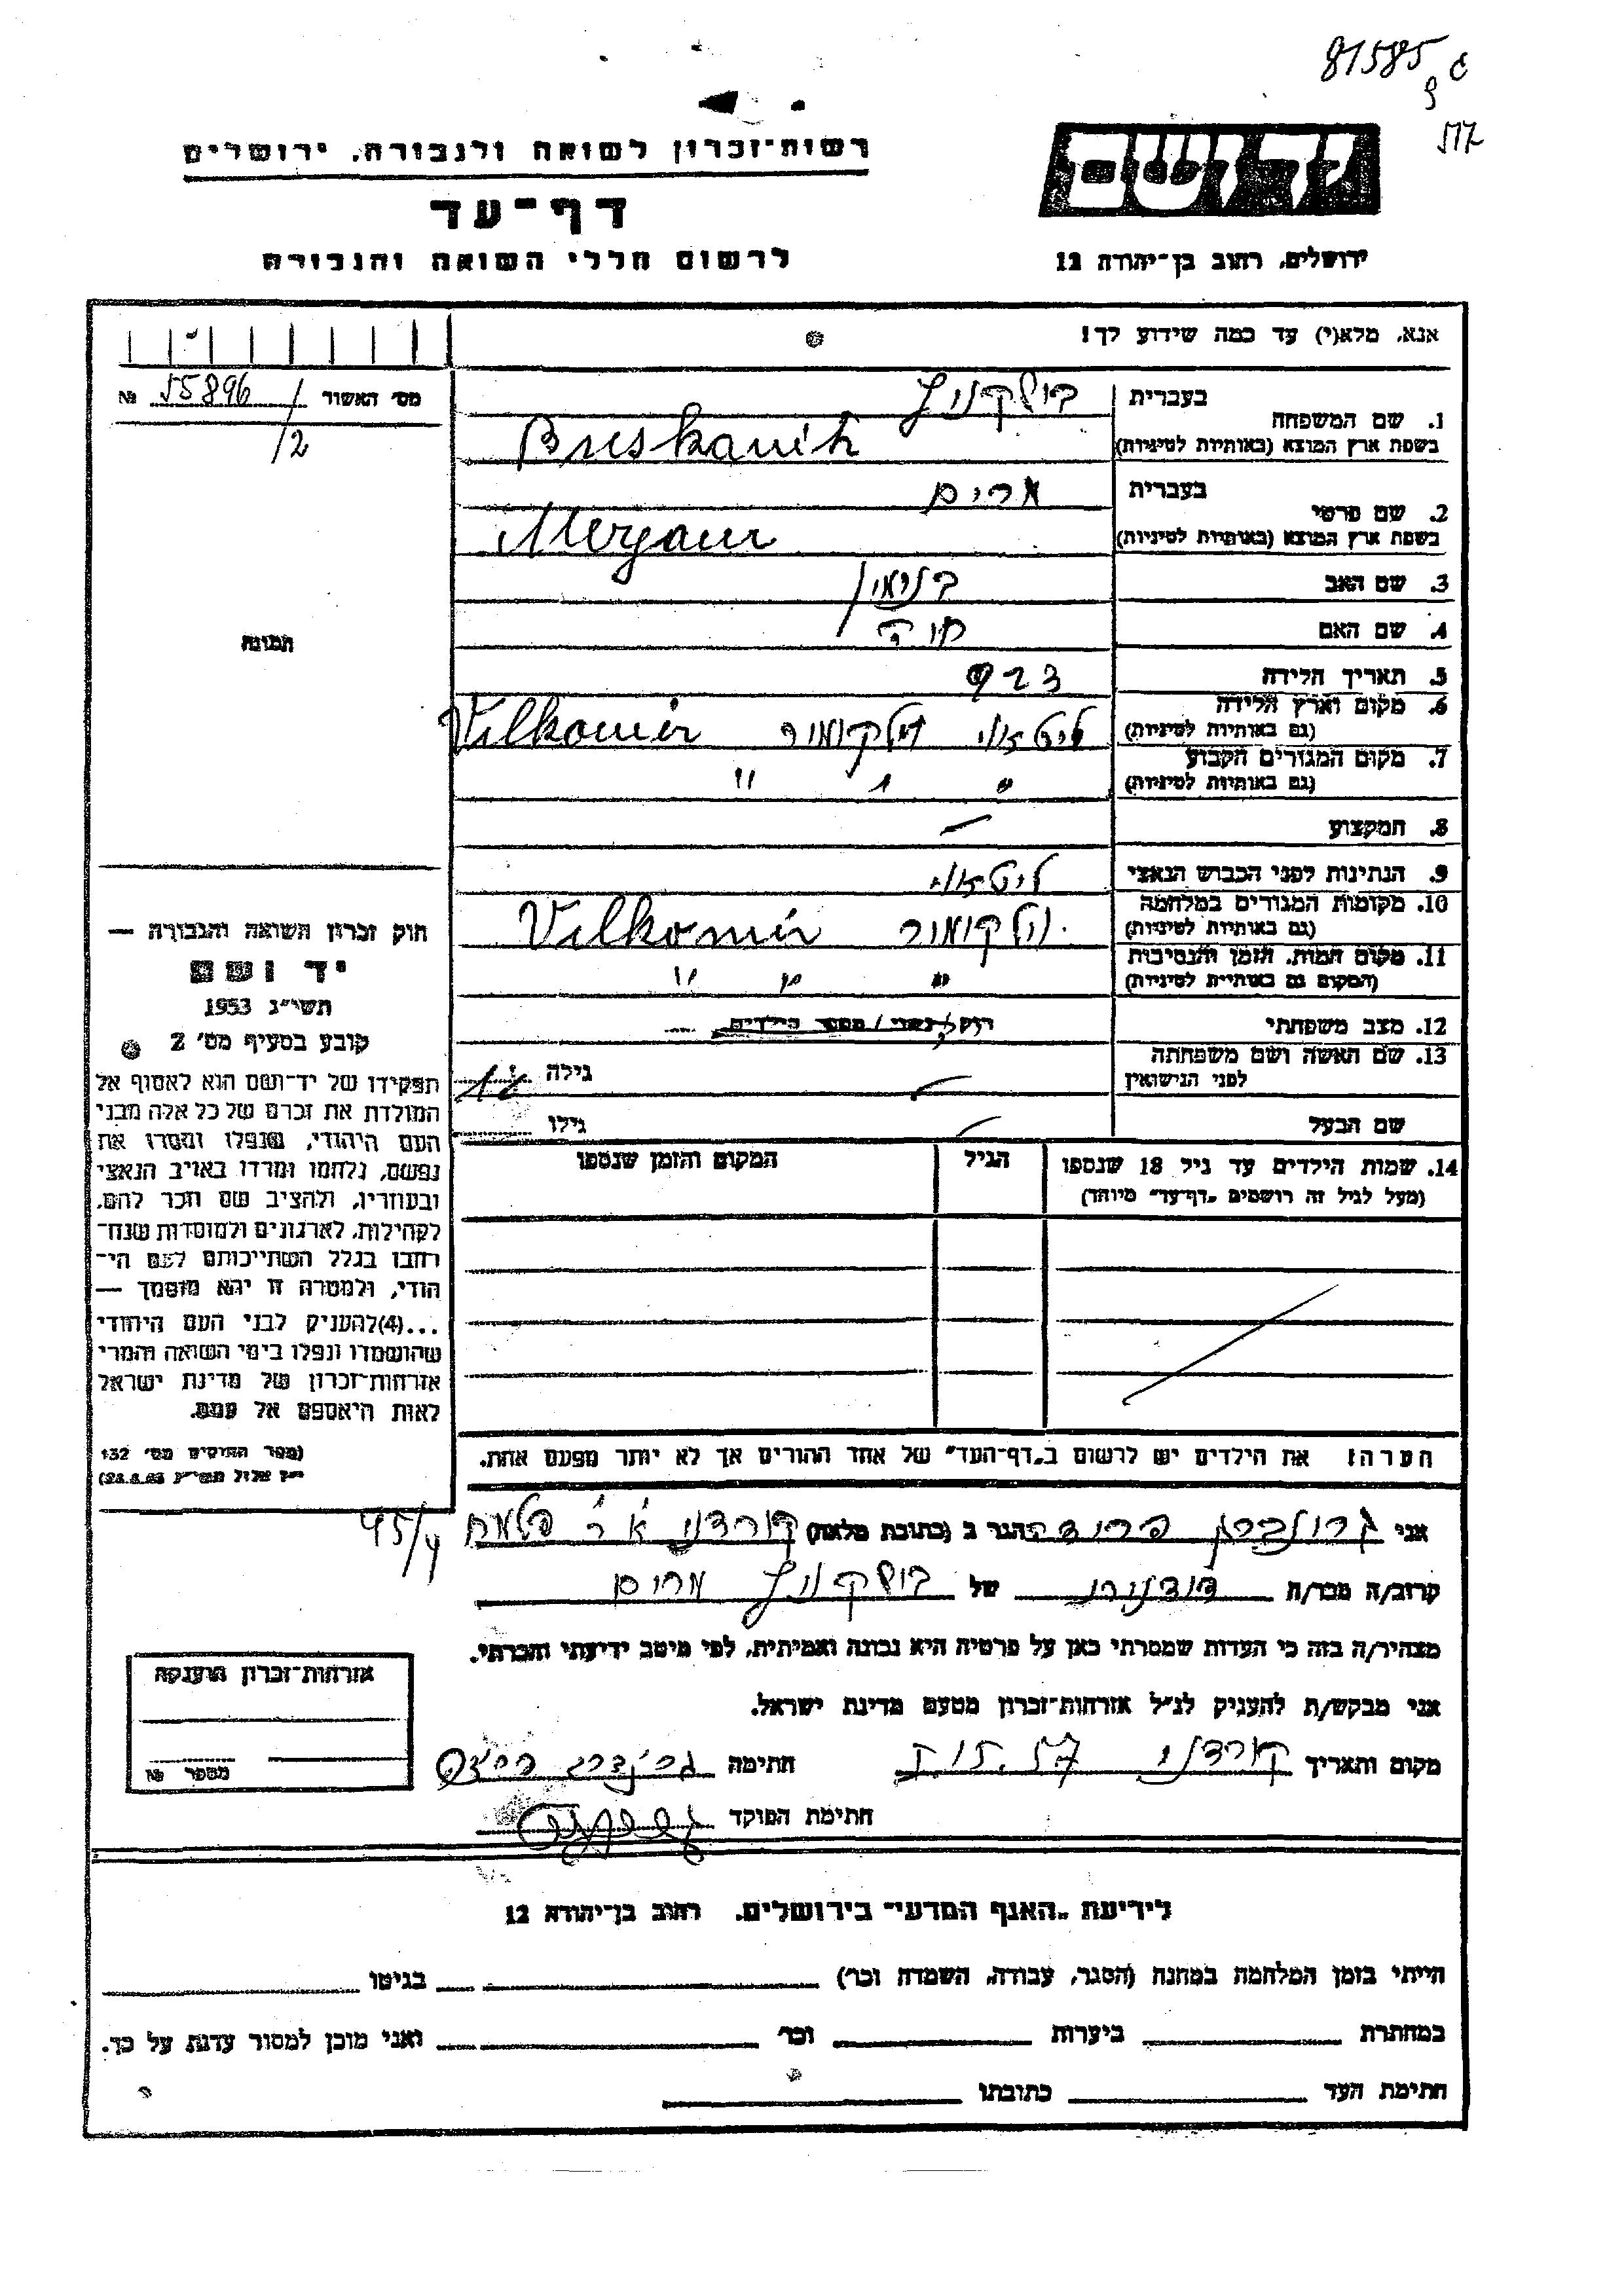 81585
רשות־זכרון לשואה ולגבורה, ירושלים
דף־עד
לרשום חללי השואה והגבורה
יד ושם
ירושלים, רחוב בן־יהודה 12
אנא, מלא(י) עד כמה שידוע לך!
מס' האשור 55896 №
/2
תמונה
1. שם המשפחה
בעברית
בשפת ארץ המוצא (באותיות לטיניות)
2. שם פרטי
בעברית מרים
בשפת ארץ המוצא (באותיות לטיניות) Meryam
3. שם האב בנימין
4. שם האם
5. תאריך הלידה 923
6. מקום וארץ הלידה
(גם באותיות לטיניות) ליטא וילקומיר Vilkomir
7. מקום המגורים הקבוע
(גם באותיות לטיניות) " " "
8. המקצוע —
9. הנתינות לפני הכבוש הנאצי
10. מקומות המגורים במלחמה
(גם באותיות לטיניות) וילקומיר Vilkomir
11. מקום המות, הזמן והנסיבות
(המקום גם באותיות לטיניות) " " "
12. מצב משפחתי רוק/נשוי/מספר הילדים
13. שם האשה ושם משפחתה
לפני הנישואין — גילה
שם הבעל — גילו
14. שמות הילדים עד גיל 18 שנספו
(מעל לגיל זה רושמים „דף־עד" מיוחד)
הגיל
המקום והזמן שנספו
הערה! את הילדים יש לרשום ב„דף־העד" של אחד ההורים אך לא יותר מפעם אחת.
חוק זכרון השואה והגבורה —
יד ושם
תשי"ג 1953
קובע בסעיף מס' 2
תפקידו של יד־ושם הוא לאסוף אל
המולדת את זכרם של כל אלה מבני
העם היהודי, שנפלו ומסרו את
נפשם, נלחמו ומרדו באויב הנאצי
ובעוזריו, ולהציב שם וזכר להם,
לקהילות, לארגונים ולמוסדות שנח־
רבו בגלל השתייכותם לעם הי־
הודי, ולמטרה זו יהא מוסמך —
...(4)להעניק לבני העם היהודי
שהושמדו ונפלו בימי השואה והמרי
אזרחות־זכרון של מדינת ישראל
לאות היאספם אל עמם.
(ספר החוקים מס' 132
אני הגר ב (כתובת מלאה)
קרוב/ה מכר/ה של מרים
מצהיר/ה בזה כי העדות שמסרתי כאן על פרטיה היא נכונה ואמיתית, לפי מיטב ידיעתי והכרתי.
אני מבקש/ת להעניק לנ"ל אזרחות־זכרון מטעם מדינת ישראל.
מקום ותאריך חתימה
חתימת הפוקד
אזרחות־זכרון הוענקה
מספר №
לידיעת „האגף המדעי" בירושלים, רחוב בן־יהודה 12
הייתי בזמן המלחמה במחנה (הסגר, עבודה, השמדה וכו') בגיטו
במחתרת ביערות וכו' ואני מוכן למסור עדות על כך.
חתימת העד כתובתו